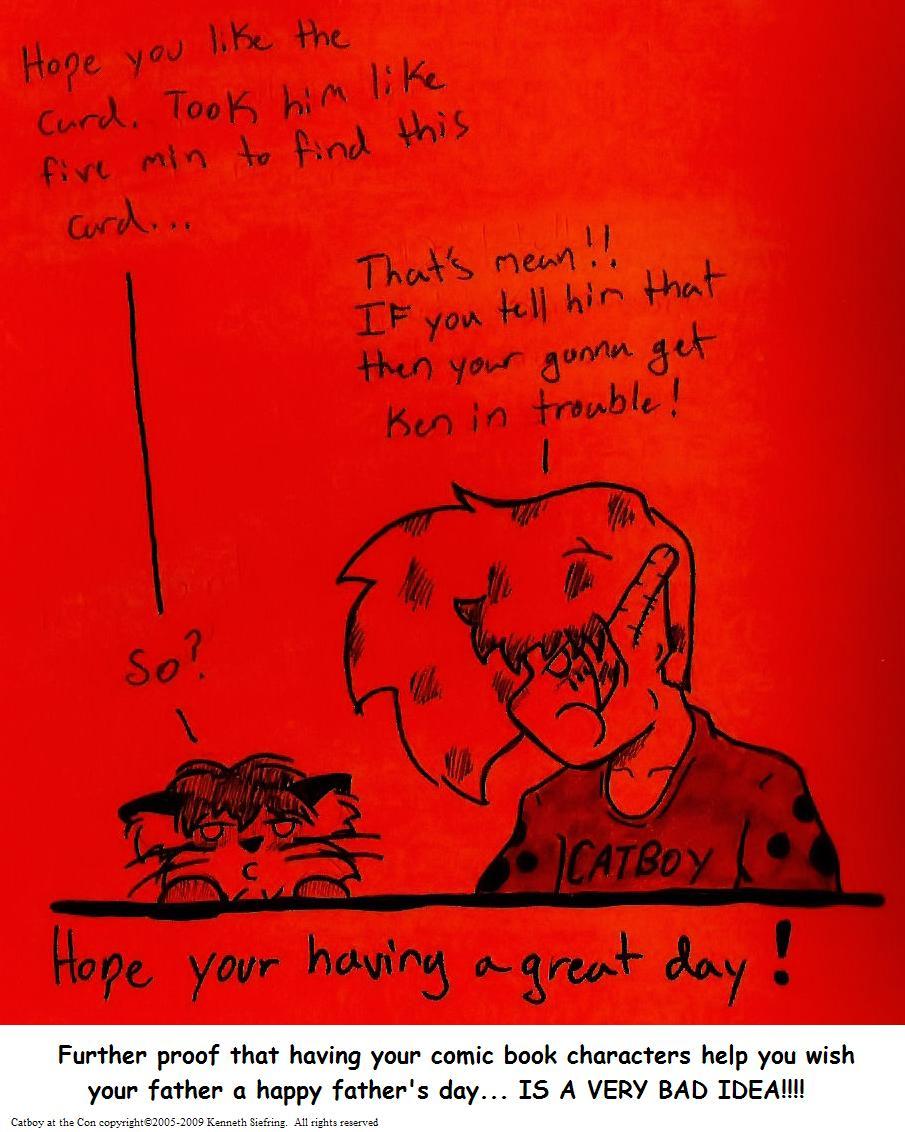 Hope you like the
card. Took him like
five min to find this
card...
That's mean!!
IF you tell him that
then your gonna get
Ken in trouble!
So?
CATBOY
Hope your having a great day!
Further proof that having your comic book characters help you wish
your father a happy father's day... IS A VERY BAD IDEA!!!!
Catboy at the Con copyright©2005-2009 Kenneth Siefring. All rights reserved